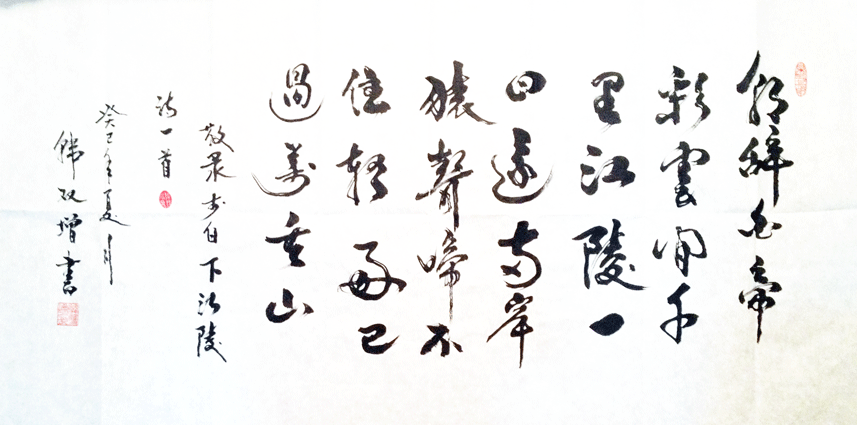 朝辞白帝
彩雲间千
里江陵一
日還两岸
猿聲啼不
住轻舟已
過萬重山
敬录李白下江陵
诗一首
癸巳年夏月
韩双增書